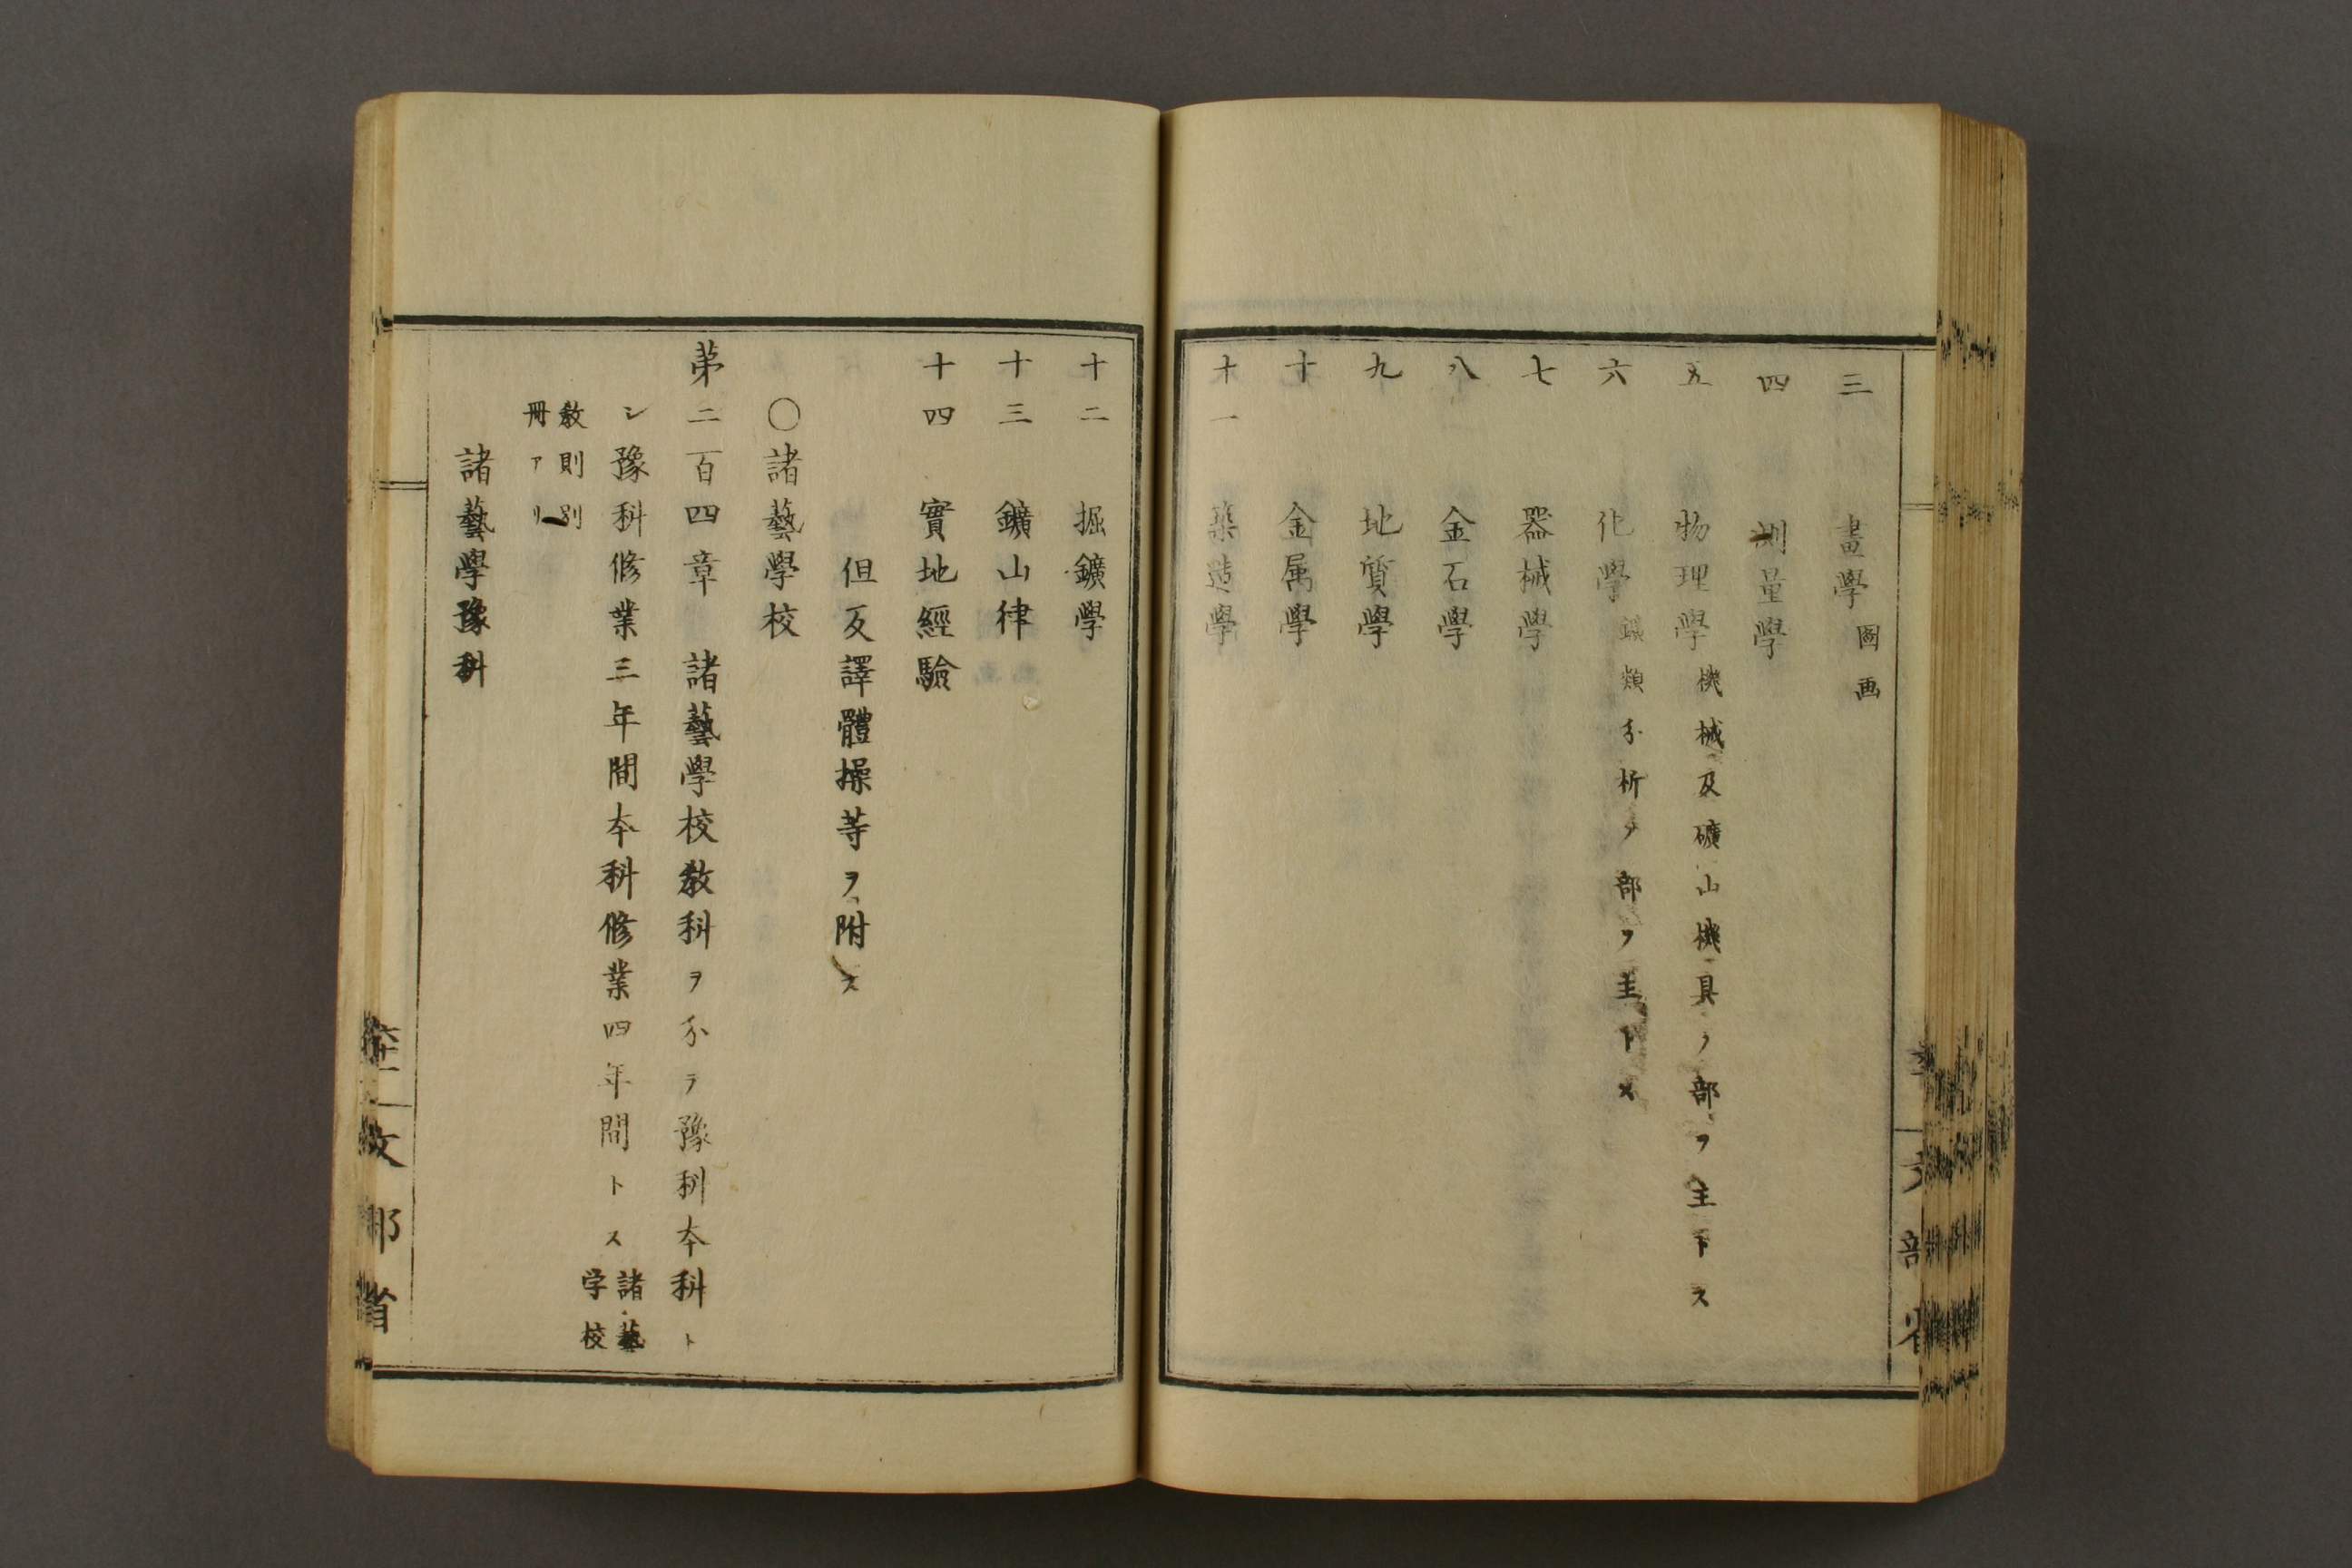 三 畫學 圖画
四 測量學
五 物理學 機械及礦山機具ノ部ヲ主トス
六 化學 鑛類分析ノ部ヲ主トス
七 器械學
八 金石學
九 地質學
十 金属學
十一 築造學
十二 掘鑛學
十三 鑛山律
十四 實地經驗
但反譯體操等ヲ附ス
〇諸藝學校
第二百四章 諸藝學校教科ヲ分ヲ豫科本科ト
シ豫科修業三年間本科修業四年間トス 諸藝学校
教則別冊アリ
諸藝學豫科
文部省